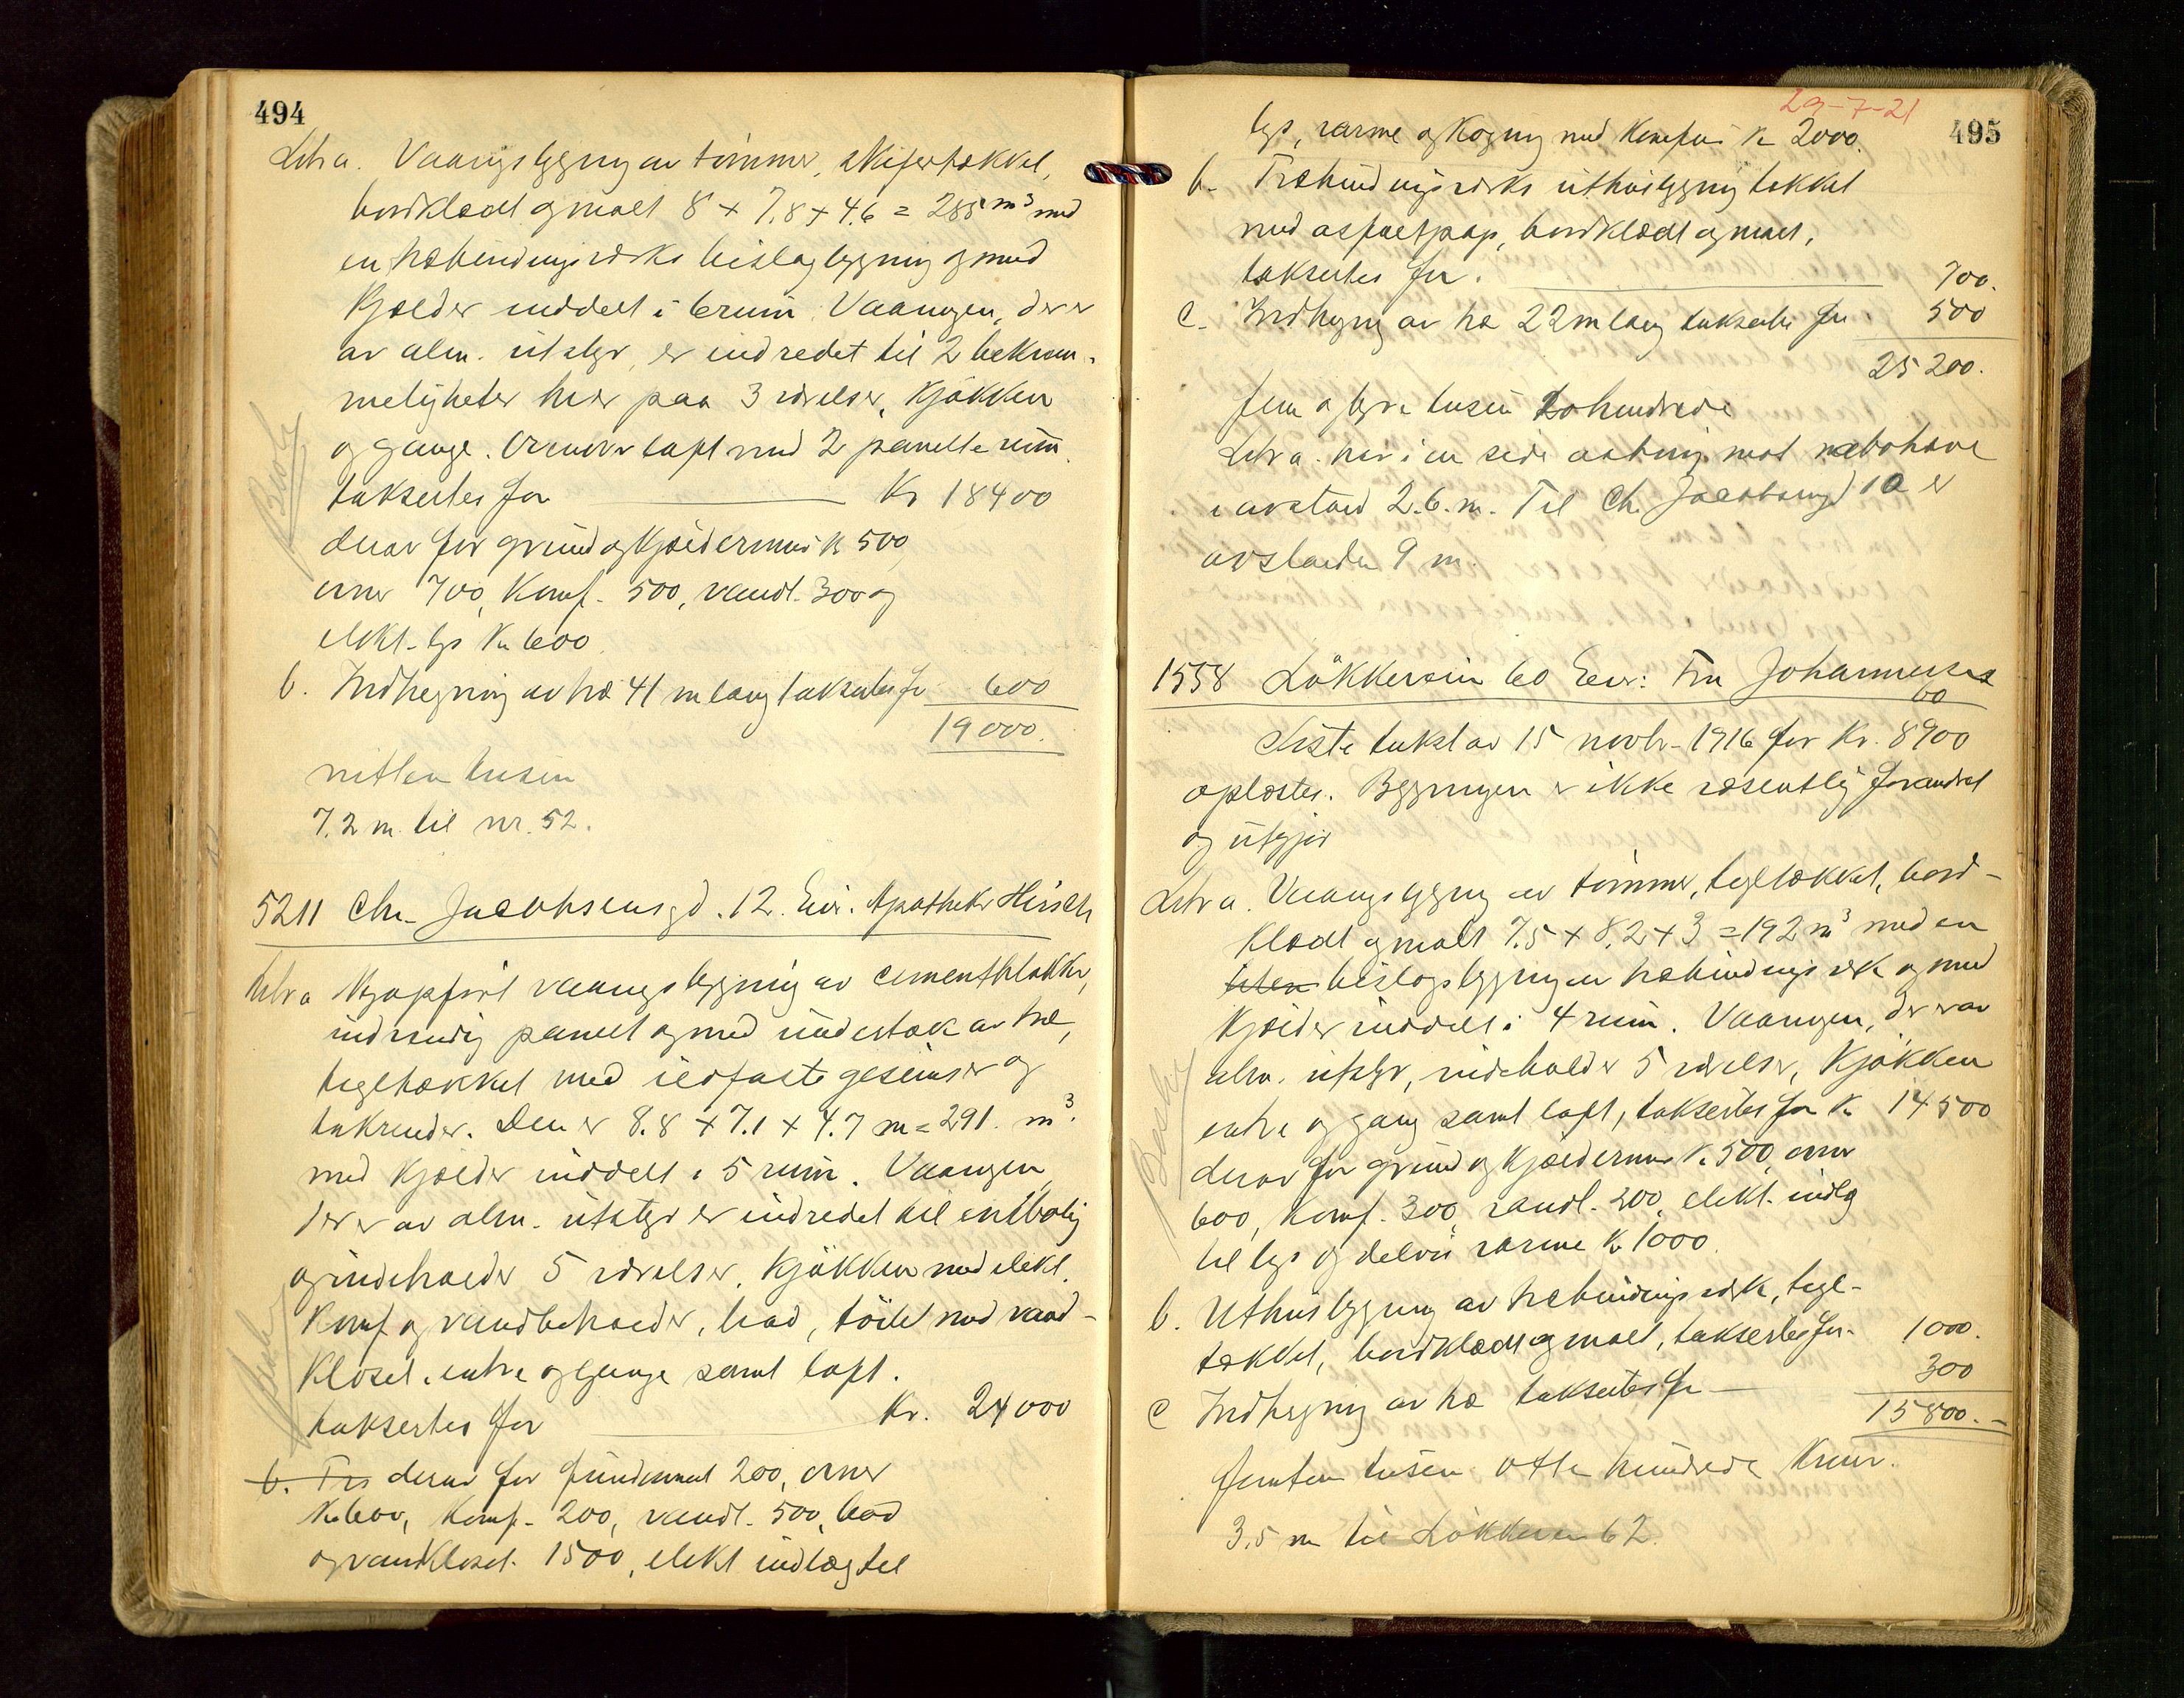 494
Litr a. Vaaningsbygning av tømmer, skifertækket,
bordklædt og malt 8 + 7.8 + 4.6 = 285 m³ med
en træbindingsverks bislagbygning og med
kjælder inddelt i 6 rum. Vaaningen, der er
av alm. utstyr, er indredet til 2 bekvem-
meligheter hver paa 3 værelser, kjøkken
og gange. Ovenover loft med 2 panelte rum
taksertes for Kr 18400
derav for grund og kjældermur kr 500,
ovner 700, komf. 500, vandl. 300 og
elekt. lys kr 600.
b. Indhegning av træ 41 m lang taksertes for 600
19000.
nitten tusen
7.2 m til nr. 52.
5211 Chr. Jacobsensgd. 12. Eier: Apotheker Hirsch
Litr a Nyopført vaaningsbygning av cementblokker,
indvendig panelt og med undertak av træ,
tegltækket med ildfaste gesimser og
takrender. Den er 8.8 + 7.1 + 4.7 m = 291. m³.
med kjælder inddelt i 5 rum. Vaaningen
der er av alm. utstyr er indredet til en bolig
og indeholder 5 værelser, kjøkken med elekt.
komf. og vandbeholder, bad, toilet med vand-
kloset, entre og gange samt loft.
taksertes for Kr. 24000
b. Træ derav for fundament 200, ovner
kr 600, komf. 200, vandl. 500, bad
og vandkloset 1500, elekt indlæg til
29-7-21
495
lys, varme og kogning med komfur kr 2000.
b. Træbindingsverks uthusbygning tækket
med asfaltpap, bordklædt og malt,
taksertes for. 700.
c. Indhegning av træ 22 m lang taksertes for. 500
25200.
fem og tyve tusen to hundrede
Litr a. har i en side aabning mot nabohave
i avstand 2.6. m. Til Ch. Jacobsensgd 10 er
avstanden 9 m.
1558 Løkkeveien 60 Eier: Fru Johannessen
60
Siste takst av 15 novbr. 1916 for Kr. 8900
oplæstes. Bygningen er ikke væsentlig forandret
og utgjør
Litr a. Vaaningsbygning av tømmer, tegltækket, bord-
klædt og malt 7.5 + 8.2 + 3 = 192 m³ med en
liten bislagsbygning av træbindingsverk og med
kjælder inddelt i 4 rum. Vaaningen, der er av
alm. utstyr, indeholder 5 værelser, kjøkken
entre og gang samt loft, taksertes for kr. 14500
derav for grund og kjældermur kr. 500, ovner
600, komf. 300, vandl. 200, elekt. indlæg
til lys og delvis varme kr 1000.
b. Uthusbygning av træbindingsverk, tegl-
tækket, bordklædt og malt, taksertes for. 1000.
c Indhegning av træ taksertes for 300
15800.-
femten tusen otte hundrede kroner.
3.5 m til Løkkeveien 62.